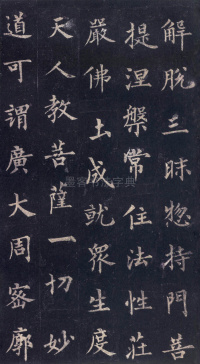 解脱三昧惣持門菩
提涅槃常住法性莊
嚴佛土成就眾生度
天人教菩薩一切妙
道可謂廣大周密廓
墨客书法字典